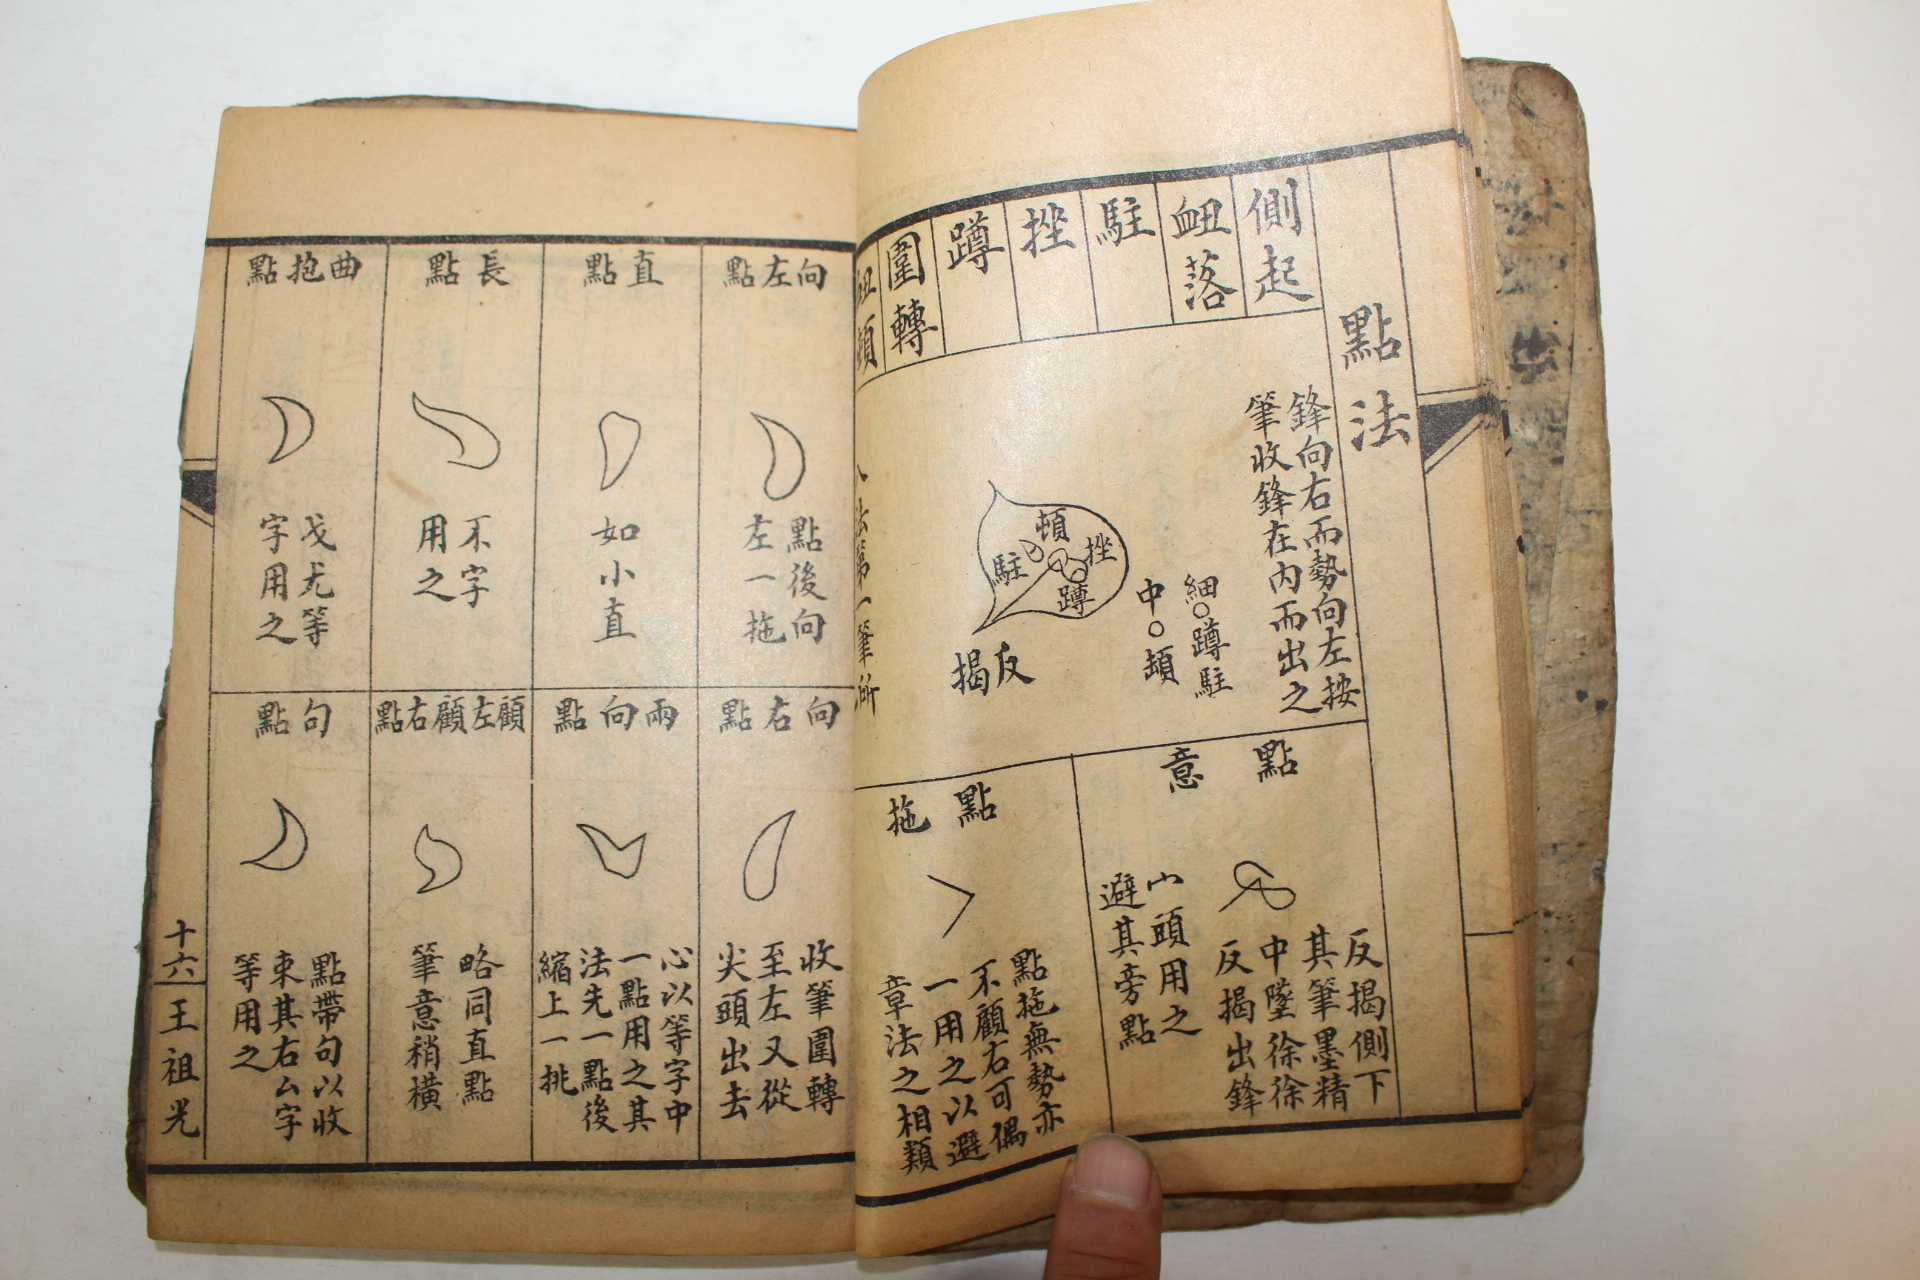 點法
側起
衄落
駐
挫
蹲
圍轉
鋒向右而勢向左按
筆收鋒在內而出之
細○蹲駐
中○頓
頓
挫
駐
蹲
反
揭
法第一筆所
點意
反揭側下
其筆墨精
中墜徐徐
反揭出鋒
小頭用之
避其旁點
點拖
點拖無勢亦
不顧右可偶
一用之以避
章法之相類
向左點
點後向
左一拖
直點
如小直
長點
不字
用之
曲抱點
戈尤等
字用之
向右點
收筆圍轉
至左又從
尖頭出去
兩向點
心以等字中
一點用之其
法先一點後
縮上一挑
顧左顧右點
略同直點
筆意稍橫
句點
點帶句以收
束其右厶字
等用之
十六
王祖光